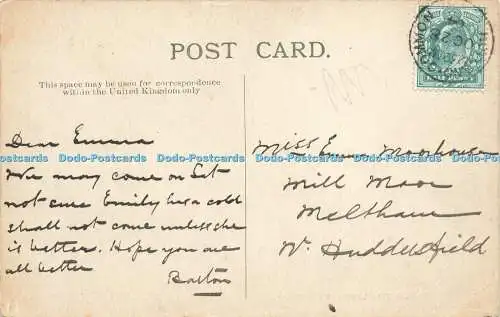 POST CARD.
This space may be used for correspondence
within the United Kingdom only
COMMON
Dear Emma
Miss Emma Moorhouse
Dodo-Postcards Dodo-Postcards Dodo-Postcards Dodo-Postcards Dodo-Postcards Dodo-Postcards
We may come on Sat
not sure Emily has a cold
shall not come unless she
is better. Hope you are
all better
Barton
Mill Moor
Meltham
Nr Huddersfield